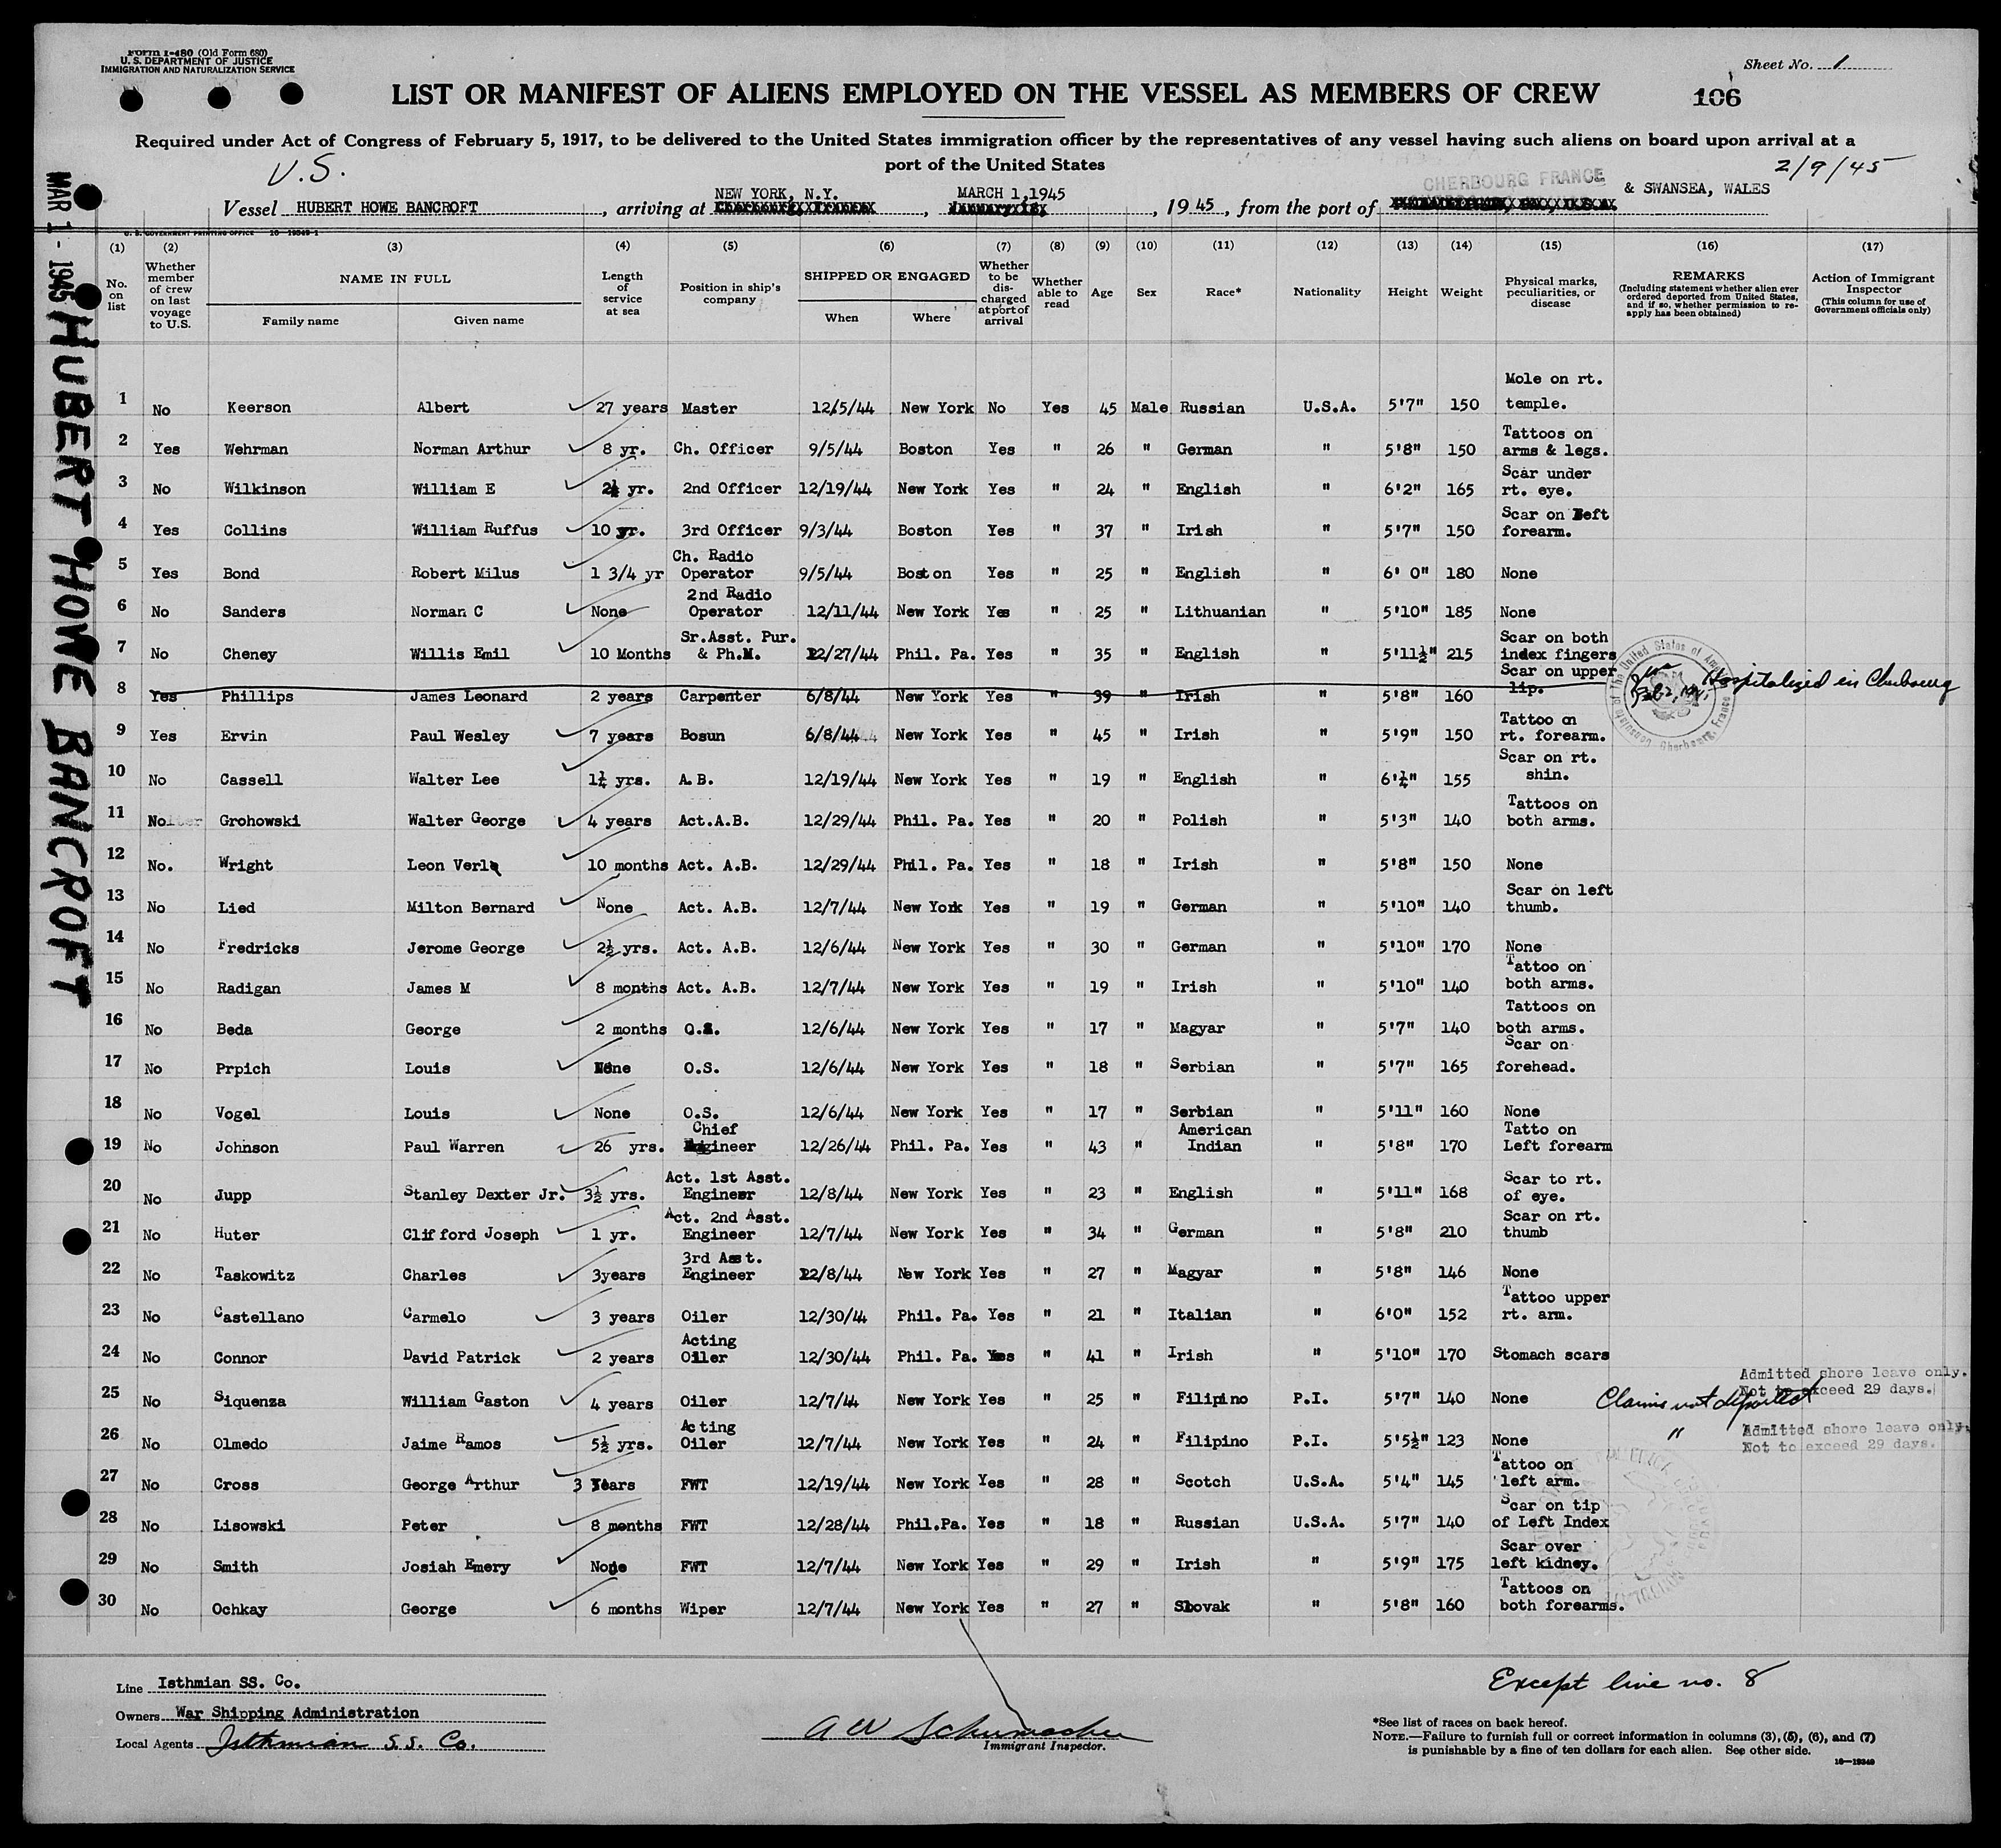 Form I-480 (Old Form 680)
U. S. DEPARTMENT OF JUSTICE
IMMIGRATION AND NATURALIZATION SERVICE
Sheet No. 1
LIST OR MANIFEST OF ALIENS EMPLOYED ON THE VESSEL AS MEMBERS OF CREW
106
Required under Act of Congress of February 5, 1917, to be delivered to the United States immigration officer by the representatives of any vessel having such aliens on board upon arrival at a
port of the United States
U.S.
2/9/45
CHERBOURG FRANCE & SWANSEA, WALES
NEW YORK, N.Y. MARCH 1,1945
Vessel HUBERT HOWE BANCROFT, arriving at , , 19 45, from the port of
MAR 1 - 1945 HUBERT HOWE BANCROFT
(1) (2) (3) (4) (5) (6) (7) (8) (9) (10) (11) (12) (13) (14) (15) (16) (17)
No. on list
Whether member of crew on last voyage to U.S.
NAME IN FULL
Family name Given name
Length of service at sea
Position in ship's company
SHIPPED OR ENGAGED
When Where
Whether to be discharged at port of arrival
Whether able to read
Age
Sex
Race*
Nationality
Height
Weight
Physical marks, peculiarities, or disease
REMARKS
(Including statement whether alien ever ordered deported from United States, and if so, whether permission to reapply has been obtained)
Action of Immigrant Inspector
(This column for use of Government officials only)
1 No Keerson Albert 27 years Master 12/5/44 New York No Yes 45 Male Russian U.S.A. 5'7" 150 Mole on rt. temple.
2 Yes Wehrman Norman Arthur 8 yr. Ch. Officer 9/5/44 Boston Yes " 26 " German " 5'8" 150 Tattoos on arms & legs.
3 No Wilkinson William E 2½ yr. 2nd Officer 12/19/44 New York Yes " 24 " English " 6'2" 165 Scar under rt. eye.
4 Yes Collins William Ruffus 10 yr. 3rd Officer 9/3/44 Boston Yes " 37 " Irish " 5'7" 150 Scar on left forearm.
5 Yes Bond Robert Milus 1 3/4 yr Ch. Radio Operator 9/5/44 Boston Yes " 25 " English " 6' 0" 180 None
6 No Sanders Norman C None 2nd Radio Operator 12/11/44 New York Yes " 25 " Lithuanian " 5'10" 185 None
7 No Cheney Willis Emil 10 Months Sr.Asst. Pur. & Ph.M. 12/27/44 Phil. Pa. Yes " 35 " English " 5'11½" 215 Scar on both index fingers
8 Yes Phillips James Leonard 2 years Carpenter 6/8/44 New York Yes " 39 " Irish " 5'8" 160 Scar on upper lip. Hospitalized in Cherbourg
9 Yes Ervin Paul Wesley 7 years Bosun 6/8/44 New York Yes " 45 " Irish " 5'9" 150 Tattoo on rt. forearm.
10 No Cassell Walter Lee 1¼ yrs. A.B. 12/19/44 New York Yes " 19 " English " 6'¼" 155 Scar on rt. shin.
11 No Grohowski Walter George 4 years Act.A.B. 12/29/44 Phil. Pa. Yes " 20 " Polish " 5'3" 140 Tattoos on both arms.
12 No. Wright Leon Verle 10 months Act. A.B. 12/29/44 Phil. Pa. Yes " 18 " Irish " 5'8" 150 None
13 No Lied Milton Bernard None Act. A.B. 12/7/44 New York Yes " 19 " German " 5'10" 140 Scar on left thumb.
14 No Fredricks Jerome George 2½ yrs. Act. A.B. 12/6/44 New York Yes " 30 " German " 5'10" 170 None
15 No Radigan James M 8 months Act. A.B. 12/7/44 New York Yes " 19 " Irish " 5'10" 140 Tattoo on both arms.
16 No Beda George 2 months O.S. 12/6/44 New York Yes " 17 " Magyar " 5'7" 140 Tattoos on both arms.
17 No Prpich Louis None O.S. 12/6/44 New York Yes " 18 " Serbian " 5'7" 165 Scar on forehead.
18 No Vogel Louis None O.S. 12/6/44 New York Yes " 17 " Serbian " 5'11" 160 None
19 No Johnson Paul Warren 26 yrs. Chief Engineer 12/26/44 Phil. Pa. Yes " 43 " American Indian " 5'8" 170 Tatto on Left forearm
20 No Jupp Stanley Dexter Jr. 3½ yrs. Act. 1st Asst. Engineer 12/8/44 New York Yes " 23 " English " 5'11" 168 Scar to rt. of eye.
21 No Huter Clifford Joseph 1 yr. Act. 2nd Asst. Engineer 12/7/44 New York Yes " 34 " German " 5'8" 210 Scar on rt. thumb
22 No Taskowitz Charles 3years 3rd Asst. Engineer 12/8/44 New York Yes " 27 " Magyar " 5'8" 146 None
23 No Castellano Carmelo 3 years Oiler 12/30/44 Phil. Pa. Yes " 21 " Italian " 6'0" 152 Tattoo upper rt. arm.
24 No Connor David Patrick 2 years Acting Oiler 12/30/44 Phil. Pa. Yes " 41 " Irish " 5'10" 170 Stomach scars
25 No Siquenza William Gaston 4 years Oiler 12/7/44 New York Yes " 25 " Filipino P.I. 5'7" 140 None Claims not deported Admitted shore leave only. Not to exceed 29 days.
26 No Olmedo Jaime Ramos 5½ yrs. Acting Oiler 12/7/44 New York Yes " 24 " Filipino P.I. 5'5½" 123 None " Admitted shore leave only. Not to exceed 29 days.
27 No Cross George Arthur 3 Years FWT 12/19/44 New York Yes " 28 " Scotch U.S.A. 5'4" 145 Tattoo on left arm.
28 No Lisowski Peter 8 months FWT 12/28/44 Phil.Pa. Yes " 18 " Russian U.S.A. 5'7" 140 Scar on tip of Left Index
29 No Smith Josiah Emery None FWT 12/7/44 New York Yes " 29 " Irish " 5'9" 175 Scar over left kidney.
30 No Ochkay George 6 months Wiper 12/7/44 New York Yes " 27 " Slovak " 5'8" 160 Tattoos on both forearms.
Line Isthmian SS. Co.
Owners War Shipping Administration
Local Agents Isthmian S.S. Co.
A W Schumacher
Immigrant Inspector.
Except line no. 8
*See list of races on back hereof.
NOTE.—Failure to furnish full or correct information in columns (3), (5), (6), and (7)
is punishable by a fine of ten dollars for each alien. See other side.
16—19349